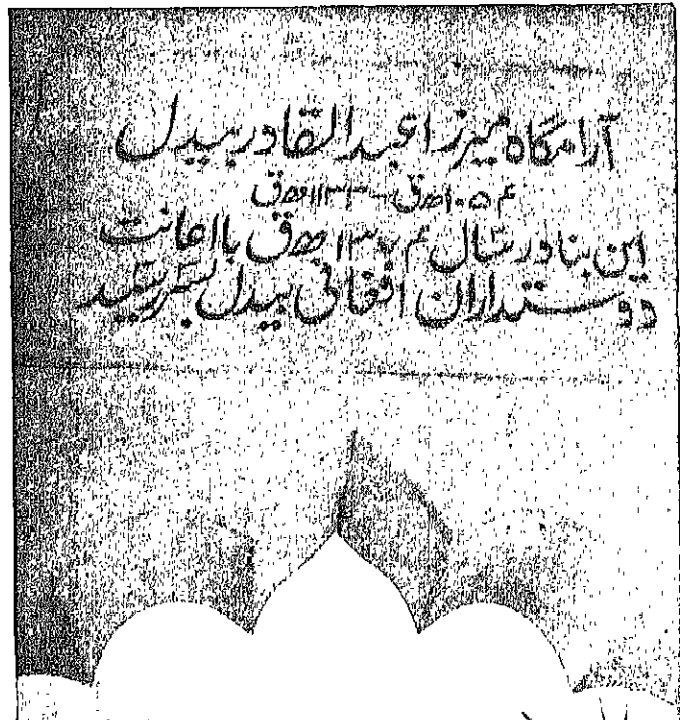 آرامگاه میرزا عبدالقادر بیدل
۱۰۵۴ھ ق — ۱۱۳۳ھ ق
این بنا در سال ھ ق با اعانت
دوستداران افغانی بیدل بسر رسید